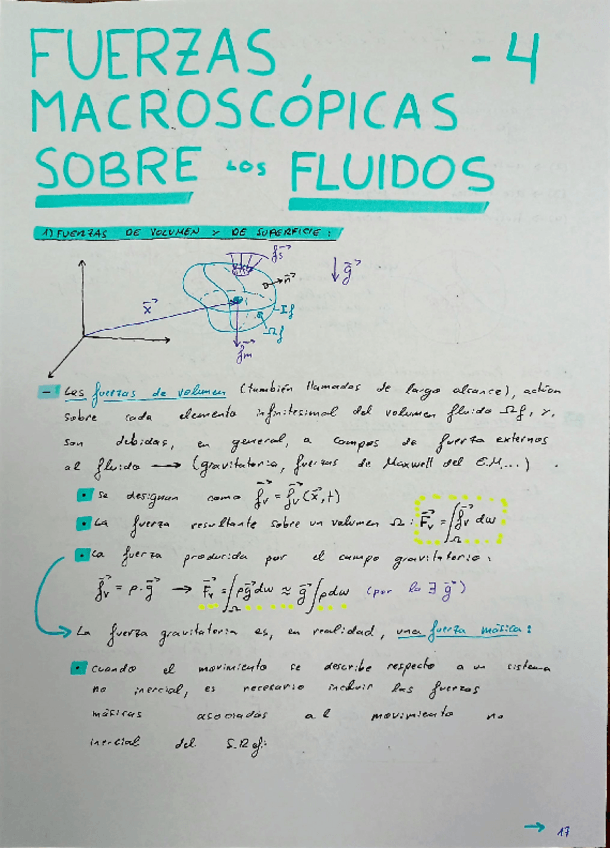 FUERZAS - 4
MACROSCÓPICAS
SOBRE LOS FLUIDOS
1) FUERZAS DE VOLUMEN Y DE SUPERFICIE:
f⃗s
n⃗
g⃗
x⃗
Σf
Ωf
f⃗m
- Las fuerzas de volumen (también llamadas de largo alcance), actúan
sobre cada elemento infinitesimal del volumen fluido Ωf, y,
son debidas, en general, a campos de fuerza externos
al fluido → (gravitatoria, fuerzas de Maxwell del E.M....).
• se designan como f⃗v = f⃗v (x⃗, t)
• La fuerza resultante sobre un volumen Ω: F⃗v = ∫Ω f⃗v dω
• La fuerza producida por el campo gravitatorio:
f⃗v = ρ · g⃗ → F⃗v = ∫Ω ρg⃗ dω ≈ g⃗ ∫ ρdω (por lo ∃ g⃗)
→ La fuerza gravitatoria es, en realidad, una fuerza másica:
• cuando el movimiento se describe respecto a un sistema
no inercial, es necesario incluir las fuerzas
másicas asociadas al movimiento no
inercial del S.R ef:
→ 17